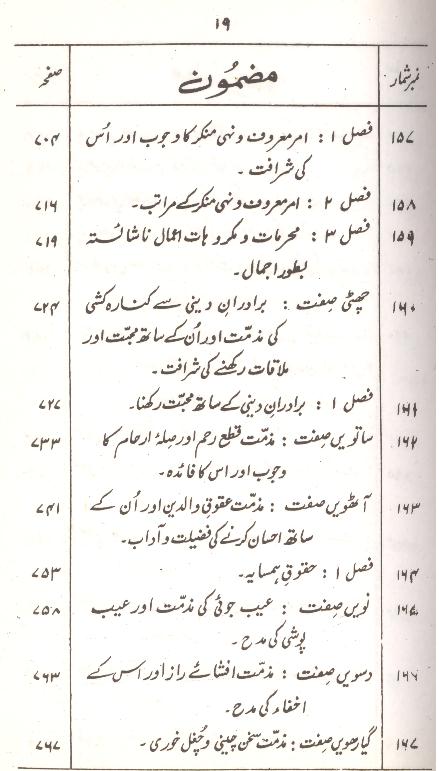 ۱۹
نمبرشمار مضمُون صفحہ
۱۵۷ فصل ۱ : امر معروف و نہی منکر کا وجوب اور اُس ۷۰۴
کی شرافت۔
۱۵۸ فصل ۲ : امر معروف و نہی منکر کے مراتب۔ ۷۱۶
۱۵۹ فصل ۳ : محرمات و مکروہات اعمال ناشائستہ ۷۱۹
بطور اجمال۔
۱۶۰ چھٹی صِفت : برادرانِ دینی سے کنارہ کشی ۷۲۴
کی مذمّت اور اُن کے ساتھ محبّت اور
ملاقات رکھنے کی شرافت۔
۱۶۱ فصل ۱ : برادرانِ دینی کے ساتھ محبّت رکھنا۔ ۷۲۷
۱۶۲ ساتویں صِفت : مذمّت قطعِ رحم اور صِلۂ ارحام کا ۷۳۳
وجوب اور اس کا فائدہ۔
۱۶۳ آٹھویں صِفت : مذمّت عقوقِ والدین اور اُن کے ۷۴۱
ساتھ احسان کرنے کی فضیلت و آداب۔
۱۶۴ فصل ۱ : حقوقِ ہمسایہ۔ ۷۵۳
۱۶۵ نویں صِفت : عیب جوئی کی مذمّت اور عیب ۷۵۸
پوشی کی مدح۔
۱۶۶ دسویں صِفت : مذمّت افشائے راز اور اس کے ۷۶۳
اخفاء کی مدح۔
۱۶۷ گیارھویں صِفت : مذمّت سخن چینی و چُغل خوری۔ ۷۶۷